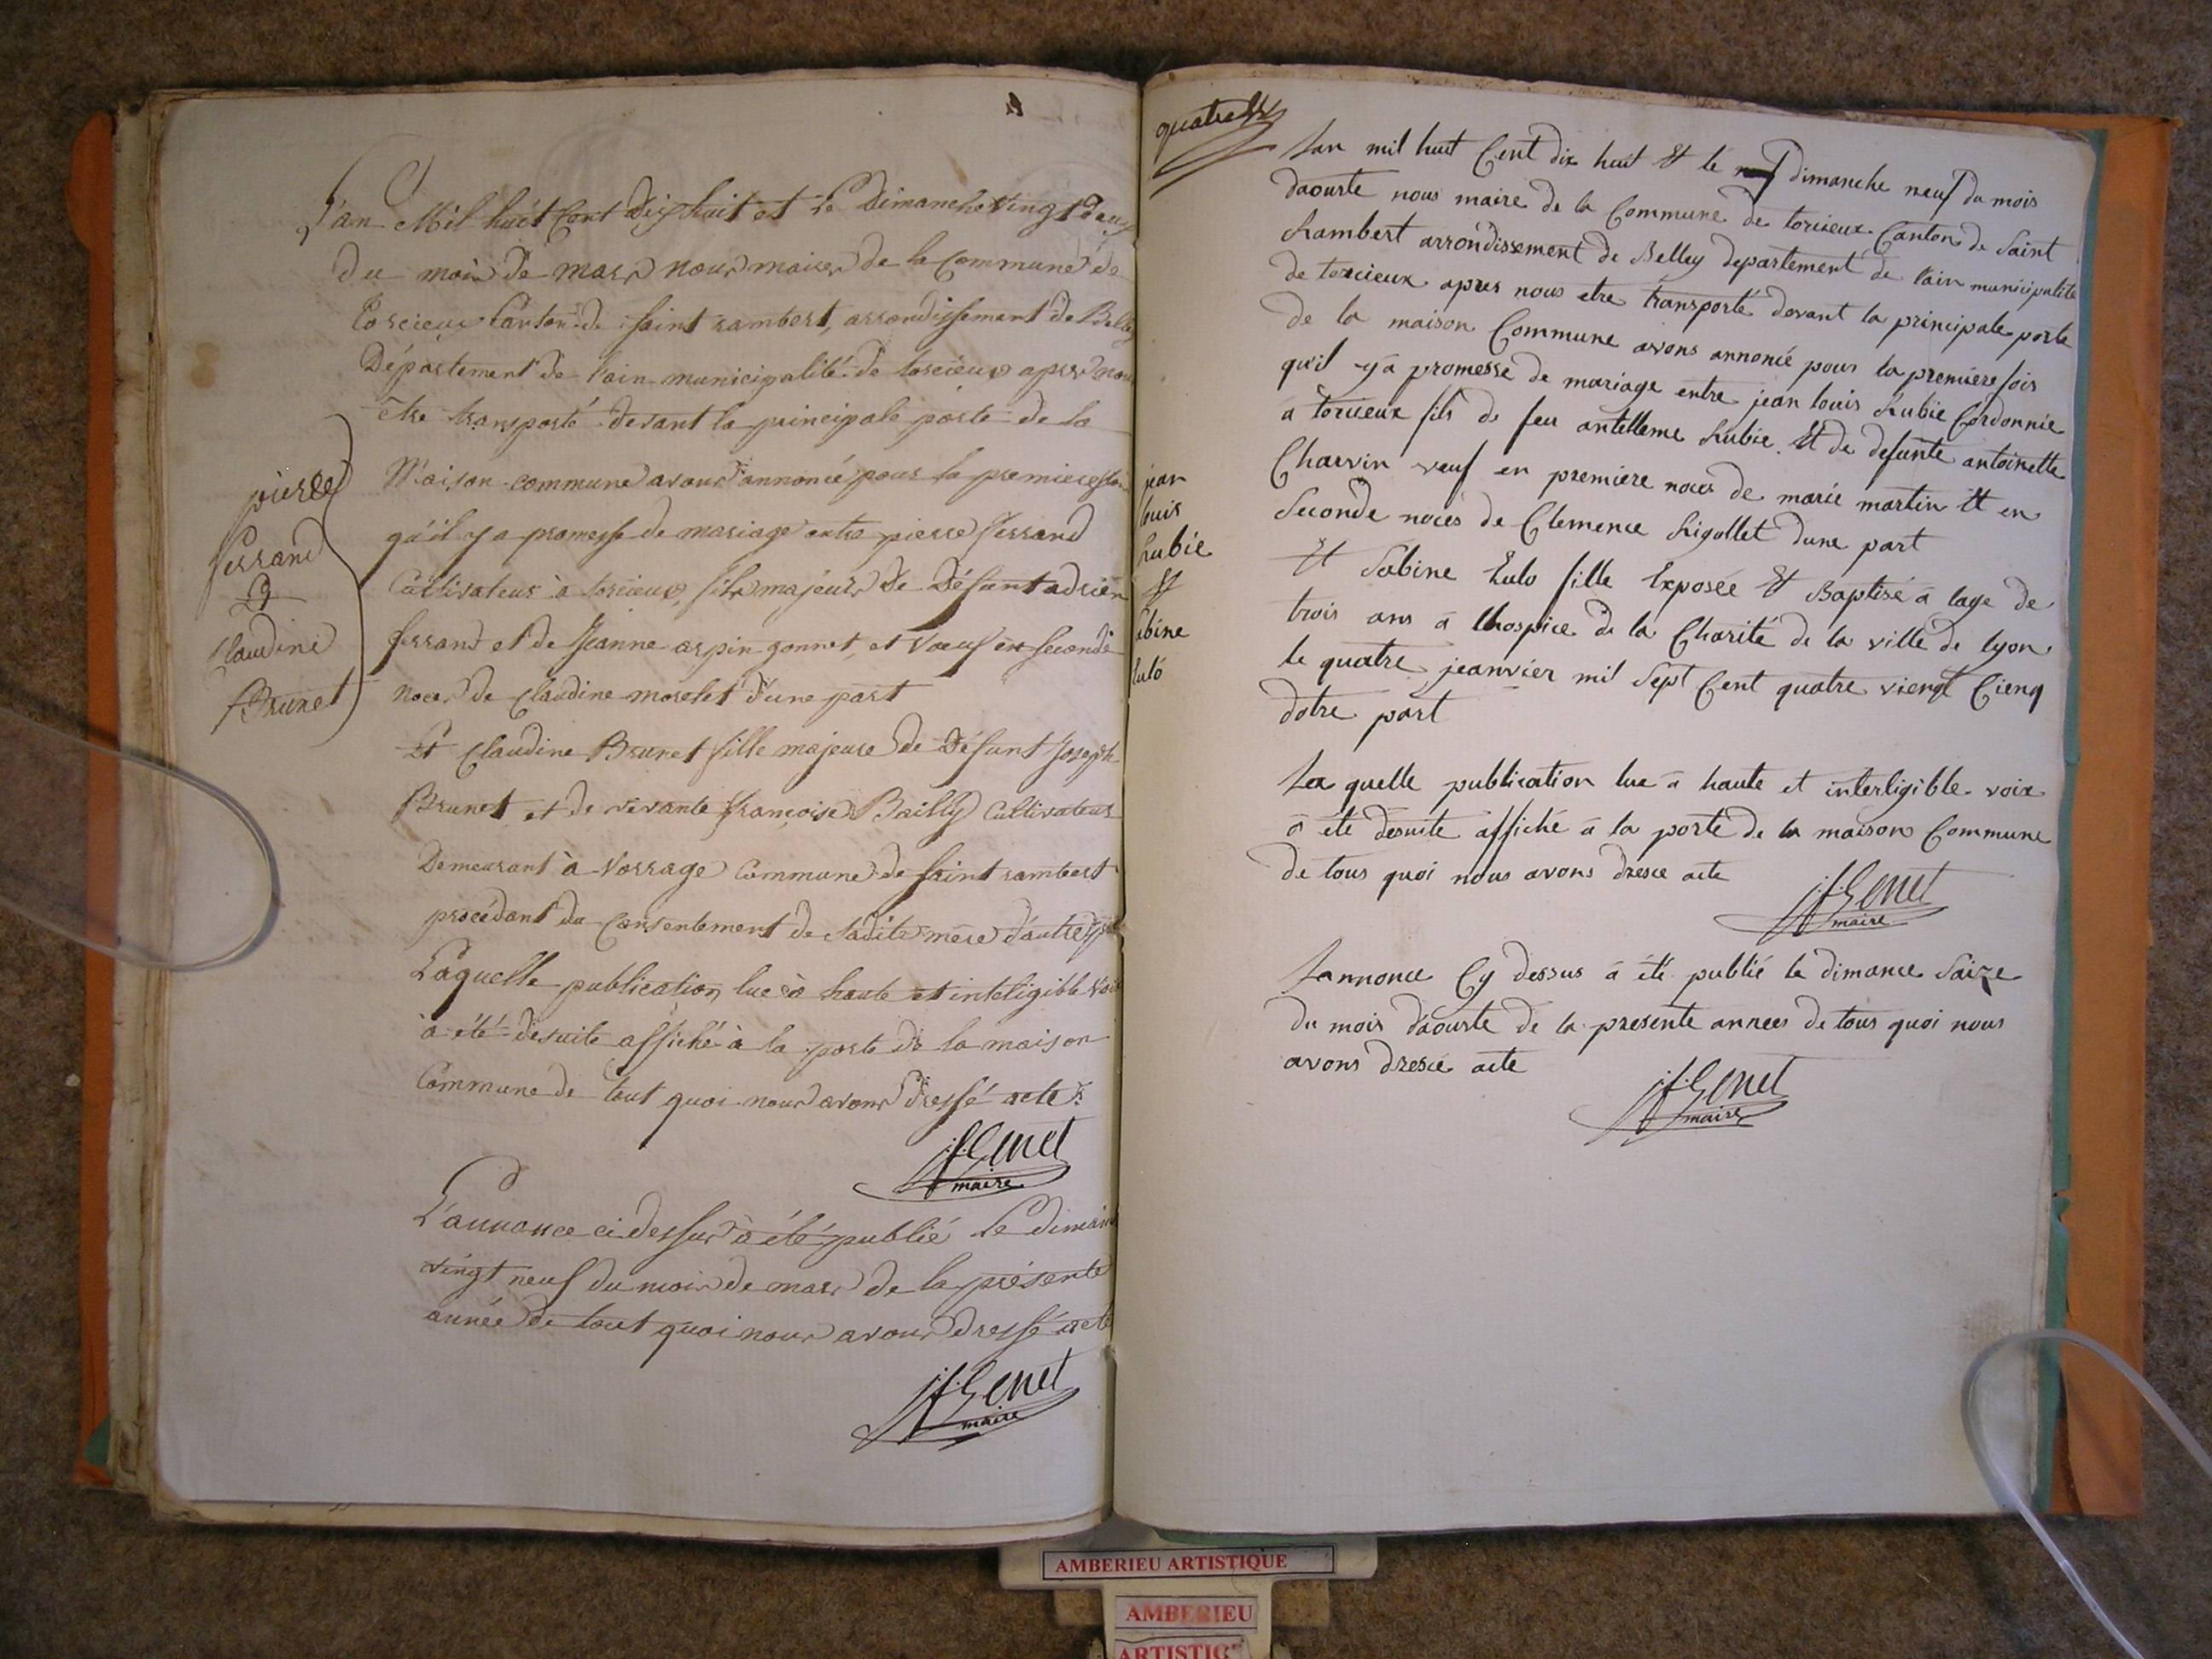 pierre
ferrand
&
Claudine
Brunet
L'an Mil huit Cent Dix huit et Le Dimanche Vingt deux
du mois de mars nous maires de la Commune de
Torcieux Canton de Saint rambert, arrondissement de Belley
Département de l'ain municipalité de torcieux apres nous
être transporté devant la principale porte de la
Maison commune avons annoncé pour la premiere fois
qu'il y a promesse de mariage entre pierre ferrand
Cultivateur à torcieux, fils majeur de Défunt adrien
ferrand et de Jeanne arpin gonnet, et Vœuf en seconde
noces de Claudine morelet d'une part
Et Claudine Brunet fille majeure de Défunt Joseph
Brunet et de vivante françoise Bailly Cultivateur
Demeurant à Vorrage Commune de saint rambert
procédant du Consentement de sadite mère d'autre part
Laquelle publication lue à haute et inteligible Voix
à été desuite affiché à la porte de la maison
Commune de tout quoi nous avons Dressé acte.
jf Genet
maire
L'annonce ci dessus à été publié le dimanc
vingt neuf du mois de mars de la présente
année de tout quoi nous avons dressé acte
jf Genet
maire
quatre
jean
louis
Lubie
Et
abine
lulo
Lan mil huit Cent dix huit Et le dimanche neuf du mois
daouste nous maire de la Commune de torcieux Canton de Saint
Rambert arrondissement de Belley departement de l'ain municipalité
de torcieux apres nous etre transporté devant la principale porte
de la maison Commune avons annoncé pour la premiere fois
qu'il y a promesse de mariage entre jean louis Lubie Cordonnie
à torcieux fils de feu antelleme Lubie Et de defunte antoinette
Charvin veuf en premiere noces de marie martin Et en
Seconde noces de Clemence Rigollet dune part
Et Sabine Lulo fille Exposée Et Baptisé à lage de
trois ans à lhospice de la Charité de la ville de lyon
le quatre jeanvier mil Sept Cent quatre viengt Cienq
dotre part
La quelle publication lue à haute et interligible voix
à été desuite affiché à la porte de la maison Commune
de tous quoi nous avons dresce acte
jf Genet
maire
Lannonce Cy dessus à été publié le dimance Saize
du mois daouste de la presente annees de tous quoi nous
avons dresce acte
jf Genet
maire
AMBERIEU ARTISTIQUE
AMBERIEU
ARTISTIQ